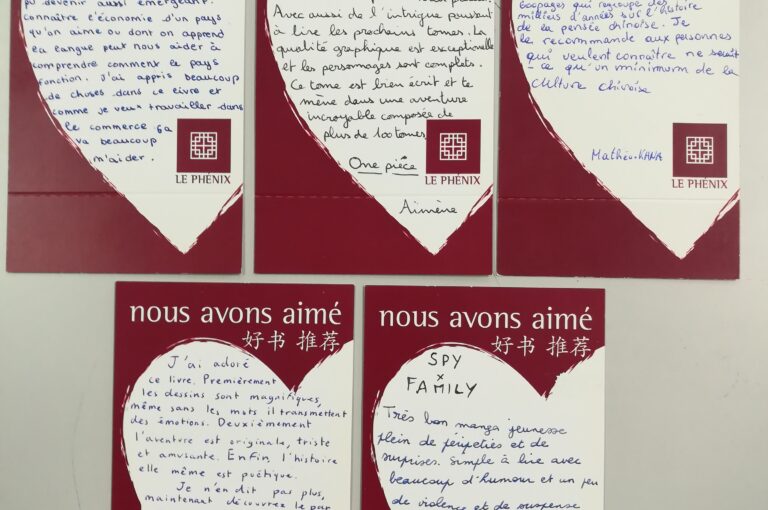 pu devenir aussi émergeant.
Connaître l'économie d'un pays
qu'on aime ou dont on apprend
la langue peut nous aider à
comprendre comment le pays
fonction. J'ai appris beaucoup
de choses dans ce livre et
comme je veux travailler dans
le commerce ça
va beaucoup
m'aider.
LE PHÉNIX
Avec aussi de l'intrigue poussant
à lire les prochains tomes. La
qualité graphique est exceptionnelle
et les personnages sont complets.
Ce tome est bien écrit et te
mène dans une aventure
incroyable composée de
plus de 100 tomes.
One pièce
LE PHÉNIX
Aimène
200 pages qui regroupe des
milliers d'années sur l'histoire
de la pensée chinoise. Je
le recommande aux personnes
qui veulent connaître ne serait
-ce qu'un minimum de la
culture chinoise
Mathéo-KANA
LE PHÉNIX
nous avons aimé
好书 推荐
J'ai adoré
ce livre. Premièrement
les dessins sont magnifiques,
même sans les mots il transmettent
des émotions. Deuxièmement
l'aventure est originale, triste
et amusante. Enfin l'histoire
elle même est poétique.
Je n'en dit pas plus,
maintenant découvrez le par
nous avons aimé
好书 推荐
SPY
x
FAMILY
Très bon manga jeunesse
plein de péripéties et de
surprises. Simple à lire avec
beaucoup d'humour et un peu
de violence et de suspense